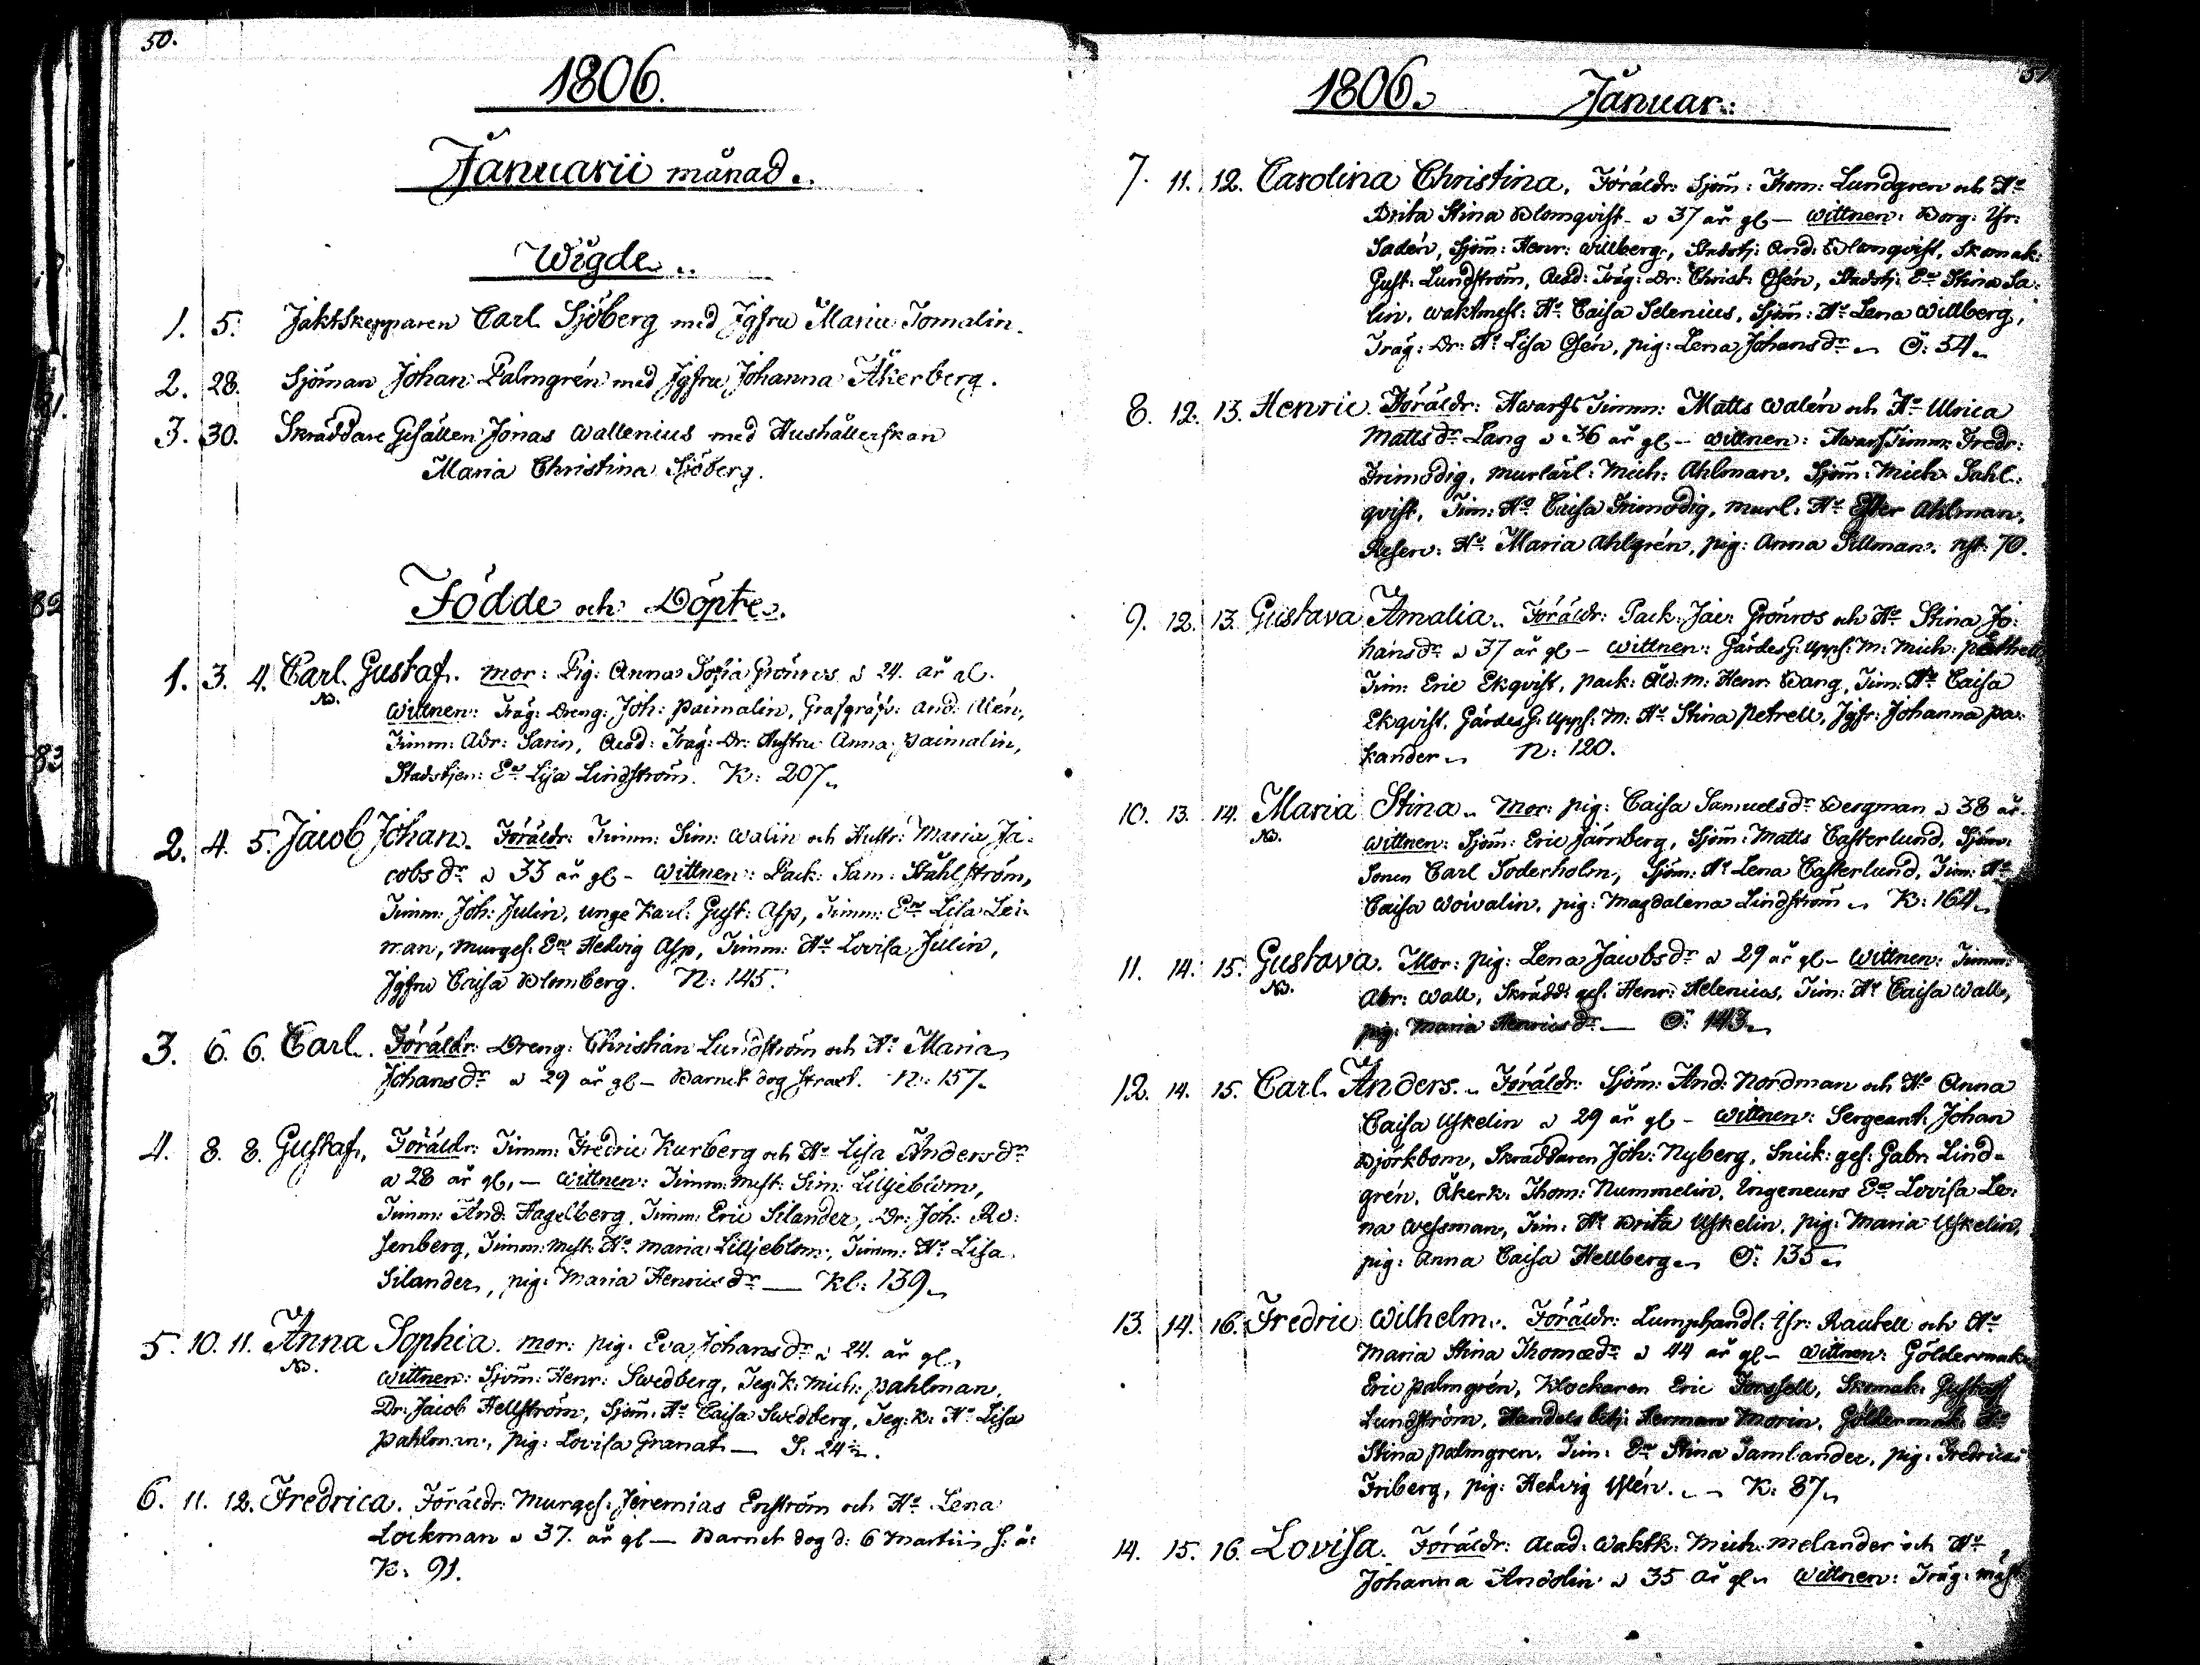 50.
1806.
Januarii månad.
Wigde
1. 5. Jaktskepparen Carl Sjöberg med Jgfru Maria Tomalin.
2. 28. Sjöman Johan Palmgrén med Jgfru Johanna Åkerberg.
3. 30. Skräddare Gesällen Jonas Wallenius med Hushållerskan
Maria Christina Sjöberg.
Födde och Döpte.
1. 3. 4. Carl Gustaf. mor: Pig: Anna Sofia Grönros a 24. år al.
NB. Wittnen: Träg: Dreng: Joh: Paimalin, Grafgräfv: And:
Timm: Abr: Sarin, Acad: Träg: Dr: Hustru Anna Paimalin,
Stadstjen: En: Lisa Lindström. K: 207.
2. 4. 5. Jacob Johan. Föräldr: Timm: Sim: Walin och Hustr: Maria Ja-
cobs dr a 33 år gl - Wittnen: Pack: Sam: Ståhlström,
Timm: Joh: Julin, unge Karl: Gust: Asp, Timm: En: Lisa Lei-
man, Murges: En: Hedvig Asp, Timm: Hu Lovisa Julin,
Jgfru Caisa Blomberg. N: 145.
3. 6. 6. Carl. Föräldr: Dreng: Christian Lundström och Hu Maria
Johans dr a 29 år gl - Barnet dog straxt. N: 157.
4. 8. 8. Gustaf, Föräldr: Timm: Fredric Kurberg och Hu Lisa Anders dr
a 28 år gl, - Wittnen: Timm: mest: Sim: Liljeblom,
Timm: And: Hagelberg, Timm: Eric Silander, Dr: Joh: Ro-
senberg, Timm: Mest: Hu Maria Liljeblom, Timm: Hu Lisa
Silander, pig: Maria Henrics dr - Kl: 139.
5. 10. 11. Anna Sophia. mor: pig: Eva Johans dr a 24. år gl,
NB. Wittnen: Sjöm: Henr: Swedberg, Teg: K: Mich: Pahlman,
Dr: Jacob Hellström, Sjöm: Hu Caisa Swedberg, Teg: K: Hu Lisa
Pahlman, pig: Lovisa Granat - S. 24½.
6. 11. 12. Fredrica. Föräldr: Murges: Jeremias Enström och Hu Lena
Lockman a 37. år gl - Barnet dog d: 6 Martii s: å:
K: 91.
1806. Januar: 51.
7. 11. 12. Carolina Christina. Föräldr: Sjöm: Thom: Lundgren och Hu
Brita Stina Blomqvist - a 37 år gl - Wittnen: Borg:
Sadén, Sjöm: Henr: Willberg, Stadstj: And: Blomqvist, Skomak:
Gust: Lundström, Acad: Träg: Dr: Christ: Osén, Stadstj: En Stina Sa-
lin, Waktmest: Hu Caisa Selenius, Sjöm: Hu Lena Willberg,
Träg: Dr: Hu Lisa Osén, pig: Lena Johans dr Ö: 54.
8. 12. 13. Henric. Föräldr: Hwarfs Timm: Matts Walén och Hu Ulrica
Matts dr Lang a 36 år gl - Wittnen: Hwarf Timm: Fredr:
Frimodig, Murlärl: Mich: Ahlman, Sjöm: Mich: Sahl-
qvist, Tim: Hu Caisa Frimodig, Murl: Hu Ester Ahlman,
Reserv: Hu Maria Ahlgrén, pig: Anna Tillman. nst: 70.
9. 12. 13. Gustava Amalia. Föräldr: Pack: Jac: Grönros och Hu Stina Jo-
hans dr a 37 år gl - Wittnen: Gärdes G: Upps: M: Mich: Pettrell
Tim: Eric Ekqvist, Pack: Åld: M: Henr: Wang, Tim: Hu Caisa
Ekqvist, Gärdes G: Upps: M: Hu Stina Petrell, Jgfr: Johanna Pa-
kander. N: 120.
10. 13. 14. Maria Stina. Mor: pig: Caisa Samuels dr Bergman a 38 år.
NB. Wittnen: Sjöm: Eric Järnberg, Sjöm: Matts Casterlund, Sjöm:
Sonen Carl Söderholm, Sjöm: Hu Lena Casterlund, Tim: Hu
Caisa Woivalin, pig: Magdalena Lindström. K: 164.
11. 14. 15. Gustava. Mor: pig: Lena Jacobs dr a 29 år gl - Wittnen: Timm:
NB. Abr: Wall, Skrädd: ges: Henr: Helenius, Tim: Hu Caisa Wall,
pig: Maria Henrics dr - Ö: 143.
12. 14. 15. Carl Anders. Föräldr: Sjöm: And: Nordman och Hu Anna
Caisa Uskelin a 29 år gl - Wittnen: Sergeant: Johan
Björkbom, Skräddaren Joh: Nyberg, Snick: ges: Gabr: Lind-
grén, Åkerk: Thom: Nummelin, Ingeneurs En Lovisa Le-
na Wessman, Tim: Hu Brita Uskelin, pig: Maria Uskelin,
pig: Anna Caisa Hellberg Ö: 135.
13. 14. 16. Fredric Wilhelm. Föräldr: Lumphandl: Rautell och Hu
Maria Stina Thomæ dr a 44 år gl - Wittnen: Göldermak
Eric Palmgrén, Klockaren Eric Forssell, Skomak: Gustaf
Lundström, Handels betj: Herman Morin, Göldermak: Hu
Stina Palmgren, Tim: En Stina Tamlander, pig: Fredrica
Friberg, pig: Hedvig K: 87.
14. 15. 16. Lovisa. Föräldr: Acad: Waktk: Mich: Melander och Hu
Johanna Andolin a 35 år gl. Wittnen: Träg: mäst